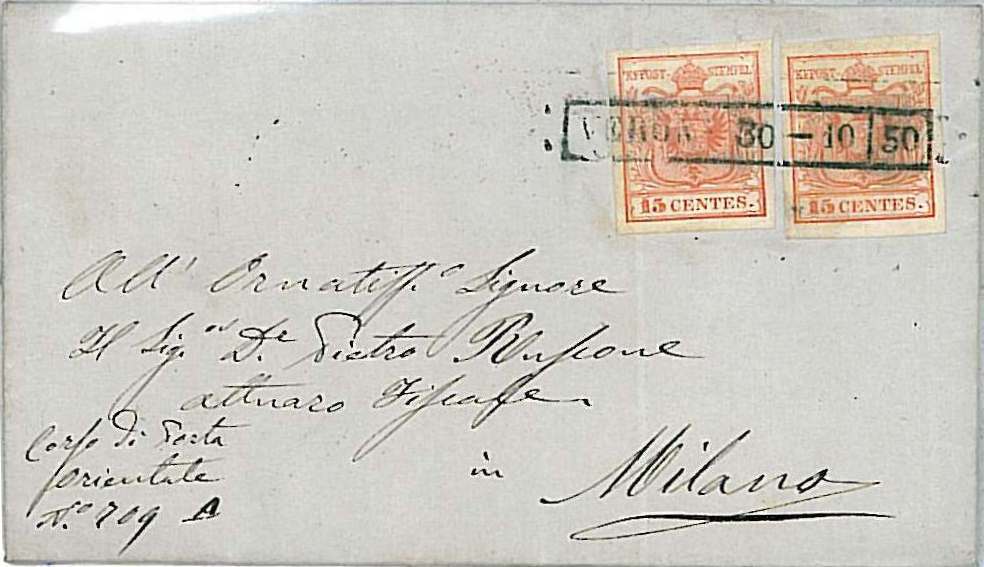 KKPOST-STEMPEL KKPOST-STEMPEL
VERONA 30 — 10 50
15 CENTES. 15 CENTES.
All' Ornatiss.o Signore
Il Sig.or D.r Pietro
attuaro Fiscale
Corso di Porta
Orientale
N.o 709 A
in Milano